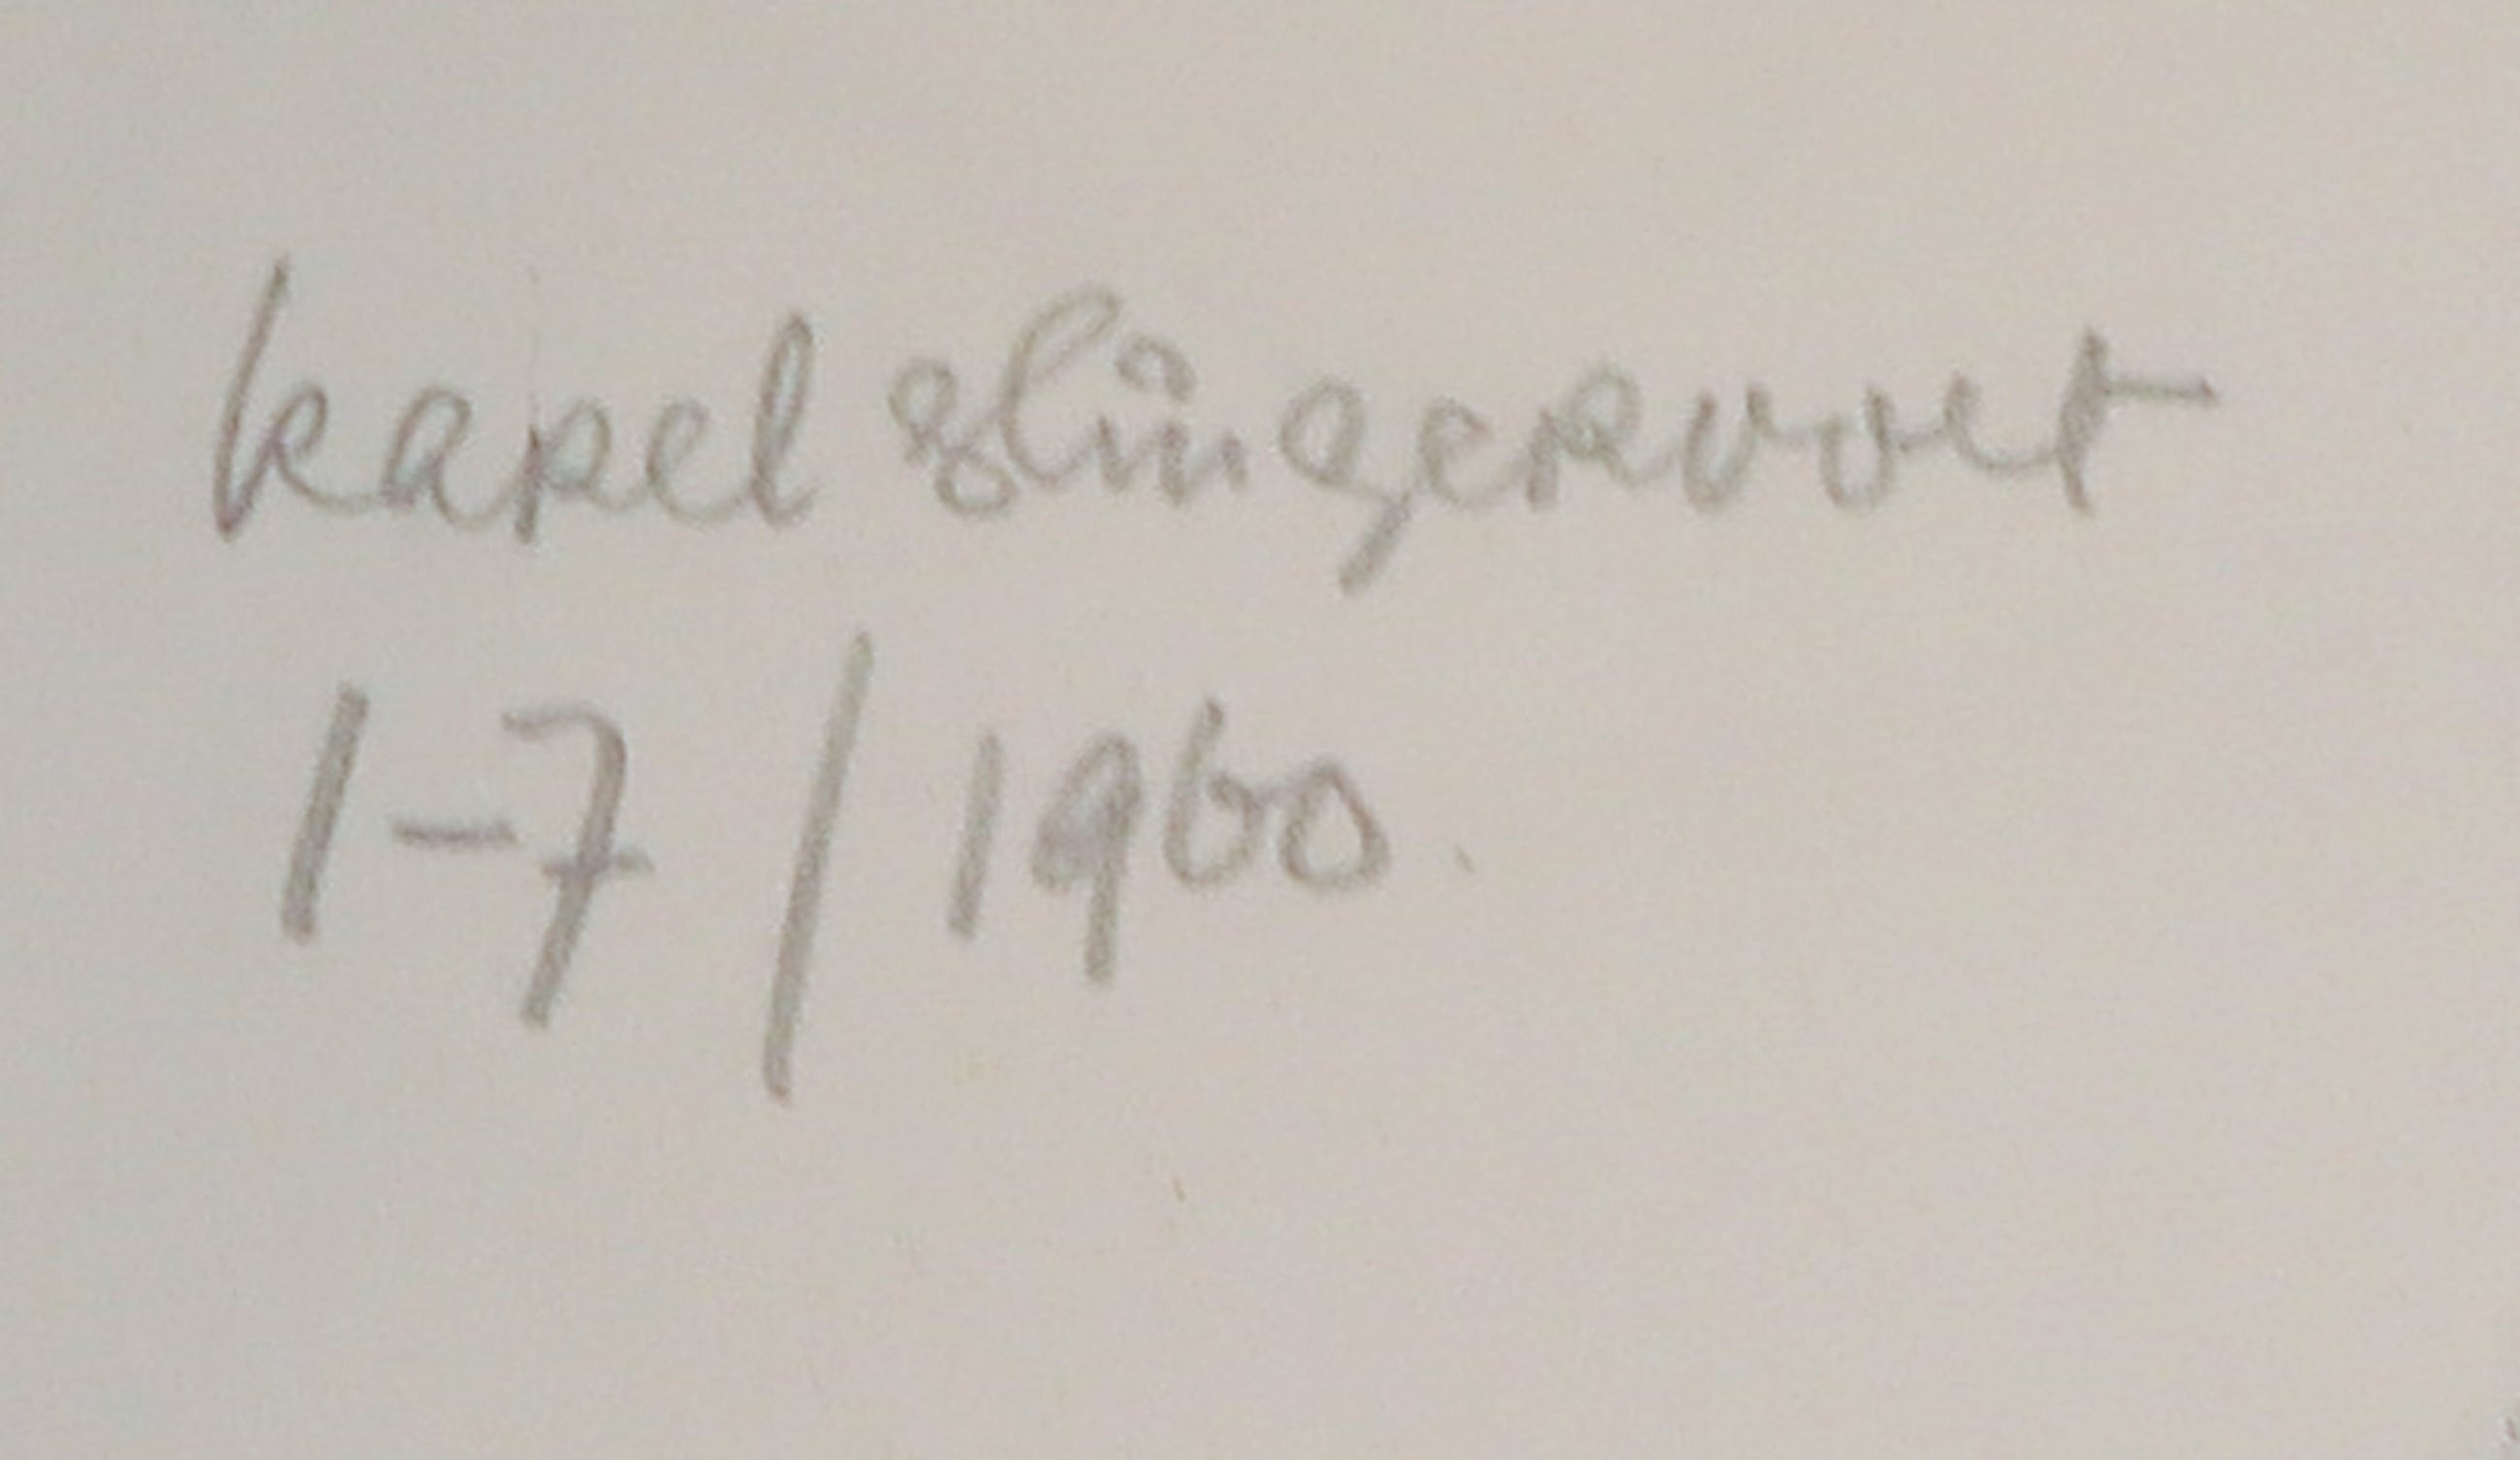 karel slingervoet
1-7/1960.